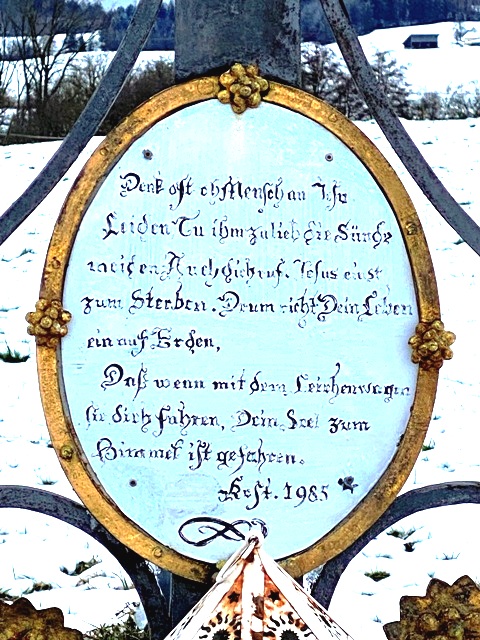 Denk oft o Mensch an Jesu
Leiden Tu ihm zulieb die Sünde
meiden Auch dich ruf. Jesus einst
zum Sterben. Drum richt Dein Leben
ein auf Erden,
Daß wenn mit dem Leichenwagen
sie dich fahren, Dein Seel zum
Himmel ist gefahren.
Rest. 1985